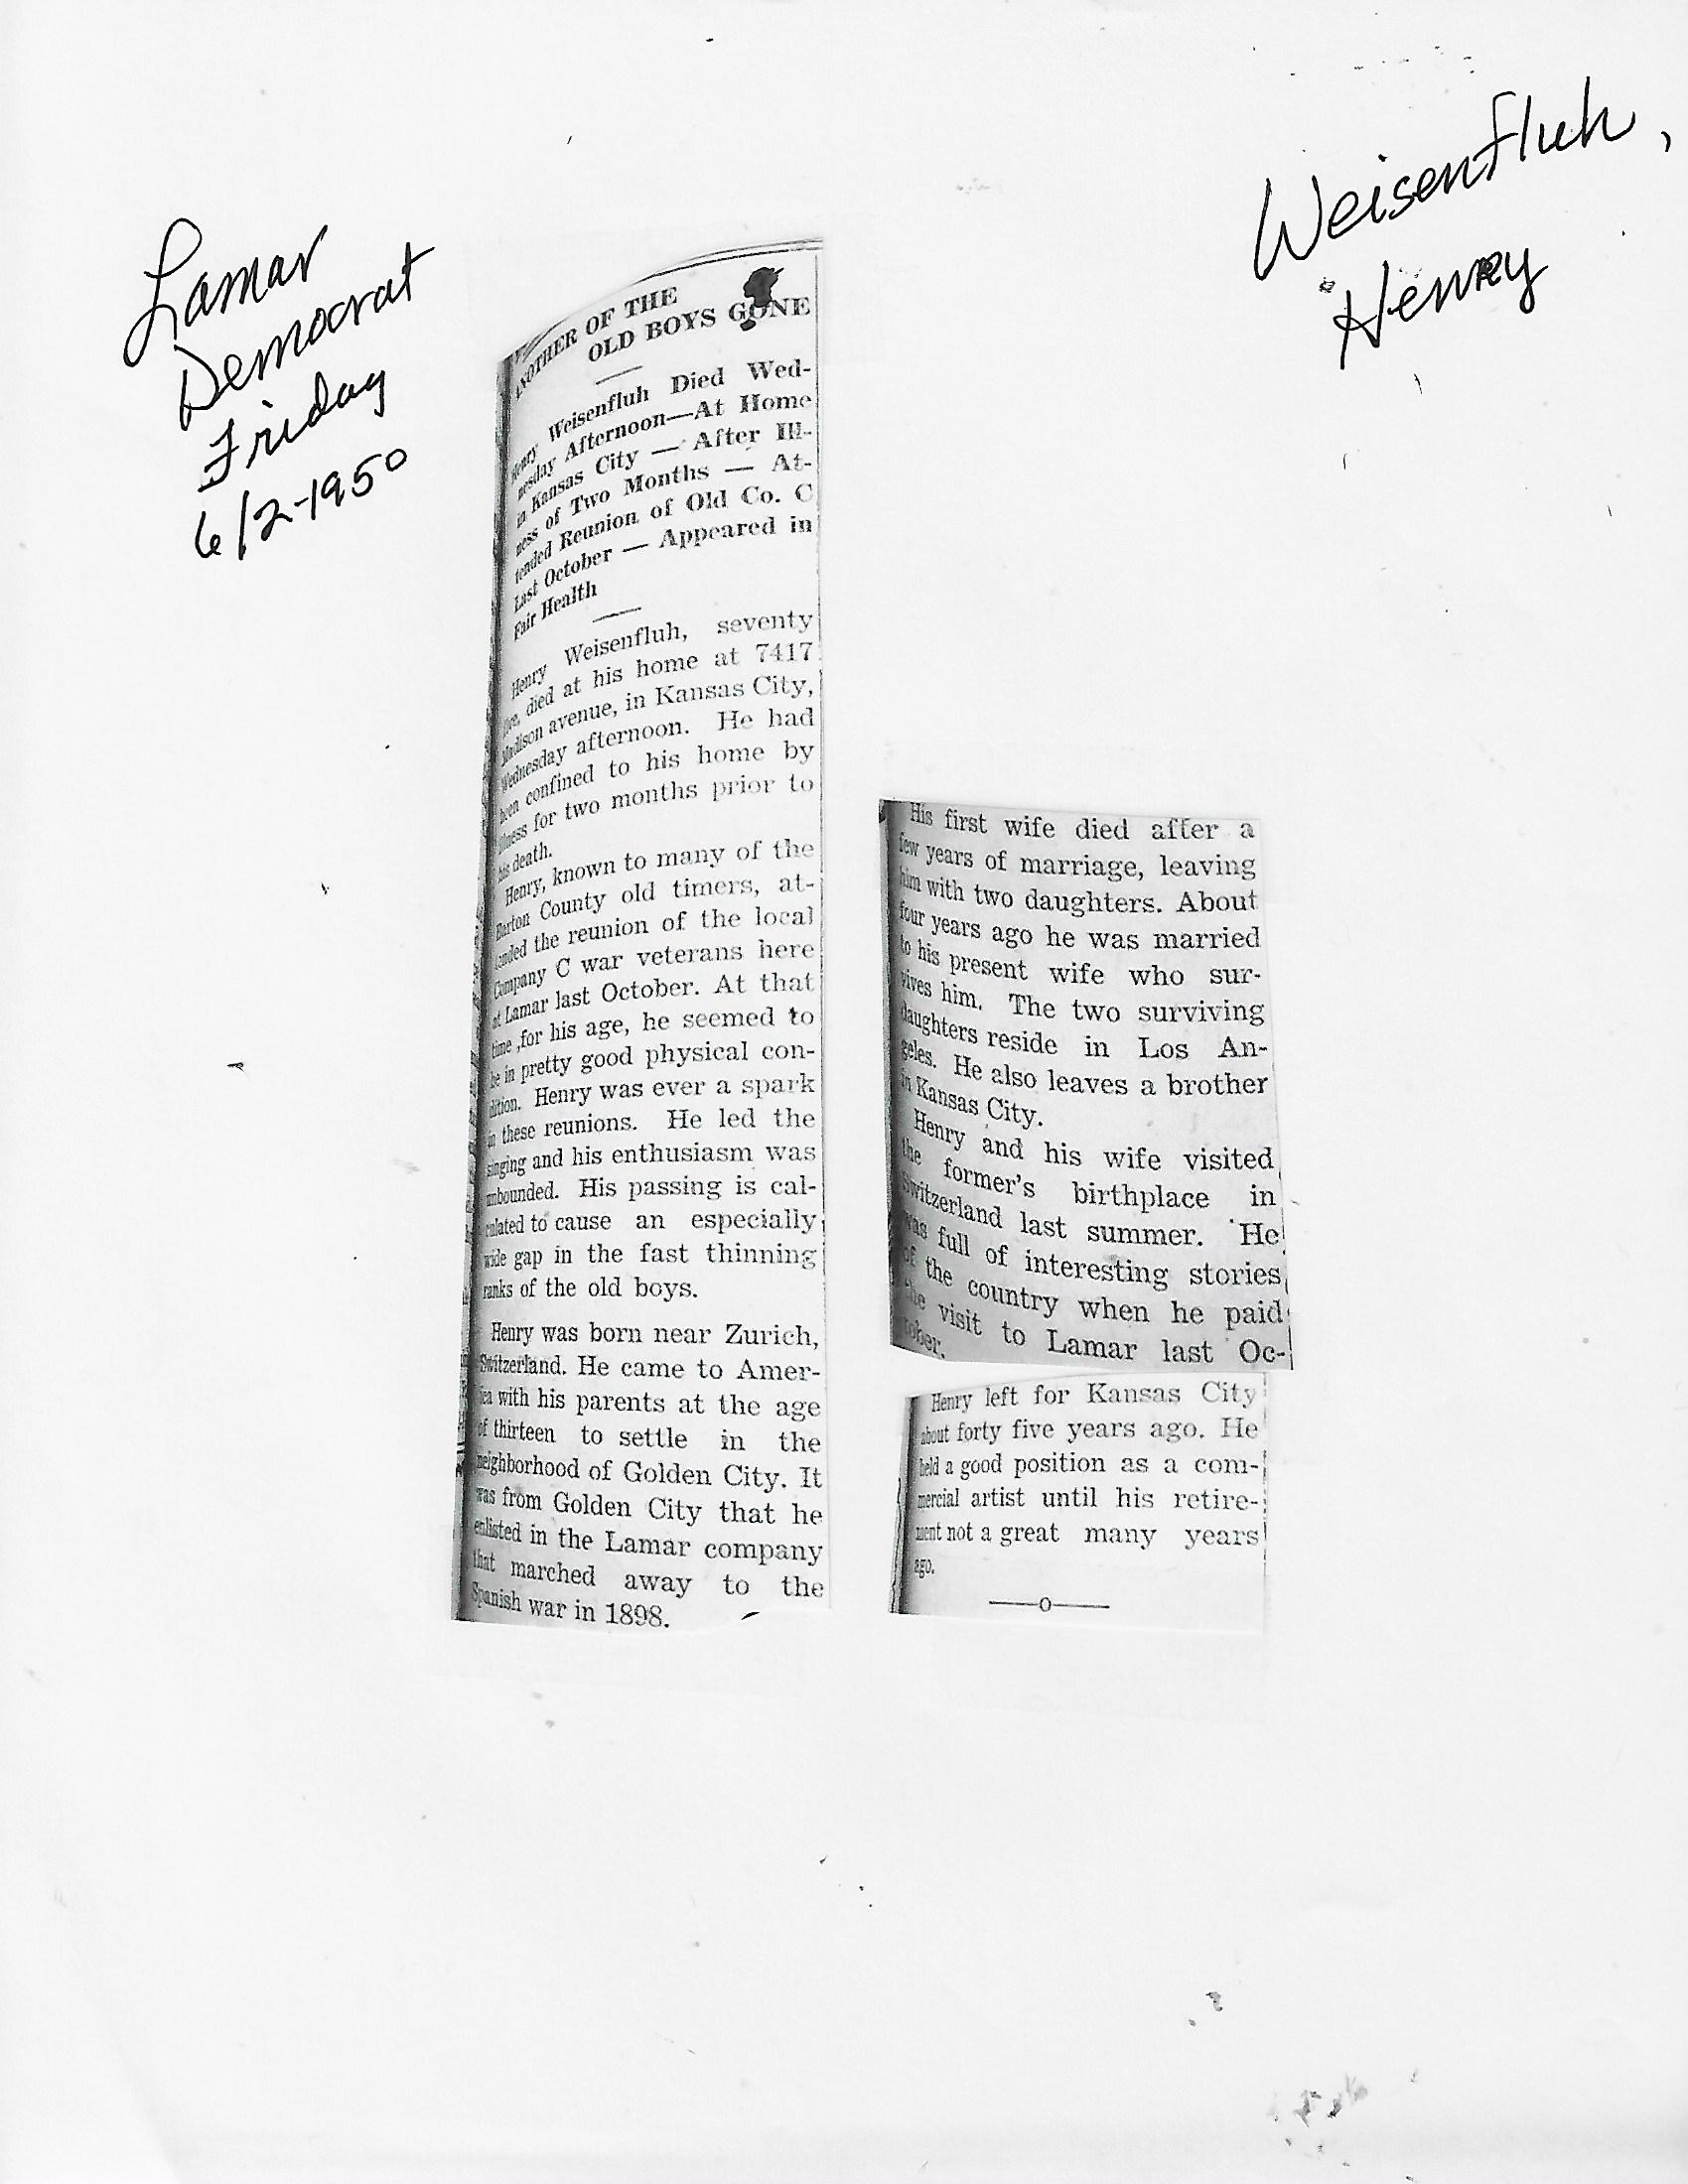 Lamar
Democrat
Friday
6/2-1950
Weisenfluh,
Henry
ANOTHER OF THE
OLD BOYS GONE
Henry Weisenfluh Died Wed-
nesday Afternoon—At Home
in Kansas City — After Ill-
ness of Two Months — At-
tended Reunion of Old Co. C
Last October — Appeared in
Fair Health
Henry Weisenfluh, seventy
five, died at his home at 7417
Madison avenue, in Kansas City,
Wednesday afternoon. He had
been confined to his home by
illness for two months prior to
his death.
Henry, known to many of the
Barton County old timers, at-
tended the reunion of the local
Company C war veterans here
at Lamar last October. At that
time ,for his age, he seemed to
be in pretty good physical con-
dition. Henry was ever a spark
in these reunions. He led the
singing and his enthusiasm was
unbounded. His passing is cal-
culated to cause an especially
wide gap in the fast thinning
ranks of the old boys.
Henry was born near Zurich,
Switzerland. He came to Amer-
ica with his parents at the age
of thirteen to settle in the
neighborhood of Golden City. It
was from Golden City that he
enlisted in the Lamar company
that marched away to the
Spanish war in 1898.
His first wife died after a
few years of marriage, leaving
him with two daughters. About
four years ago he was married
to his present wife who sur-
vives him. The two surviving
daughters reside in Los An-
geles. He also leaves a brother
in Kansas City.
Henry and his wife visited
the former's birthplace in
Switzerland last summer. He
was full of interesting stories
of the country when he paid
the visit to Lamar last Oc-
tober.
Henry left for Kansas City
about forty five years ago. He
held a good position as a com-
mercial artist until his retire-
ment not a great many years
ago.